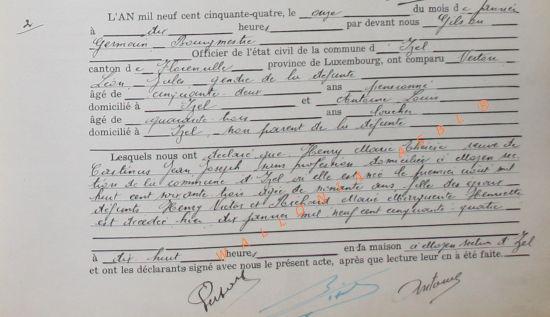 2
L'AN mil neuf cent cinquante-quatre, le onze du mois de janvier
à dix heures par devant nous Gilson
Germain Bourgmestre
Officier de l'état civil de la commune d' Izel
canton de Florenville province de Luxembourg, ont comparu
Léon Jules gendre de la défunte
âgé de cinquante deux ans pensionné
domicilié à Izel et Antoine Louis
âgé de quarante trois ans
domicilié à Izel non parent de la défunte
Lesquels nous ont déclaré que Henry Marie veuve de
Jean Joseph sans profession domiciliée à Moyen sec
tion de la commune d'Izel où elle est née le premier août mil
huit cent soixante trois âgée de nonante ans fille des époux
défunts Henry Victor et Marie Marguerite Henriette
est décédée hier dix janvier mil neuf cent cinquante quatre
à dix huit heures en la maison à Moyen section d'Izel
et ont les déclarants signé avec nous le présent acte, après que lecture leur en a été faite
WALLONIA ASBL
Antoine